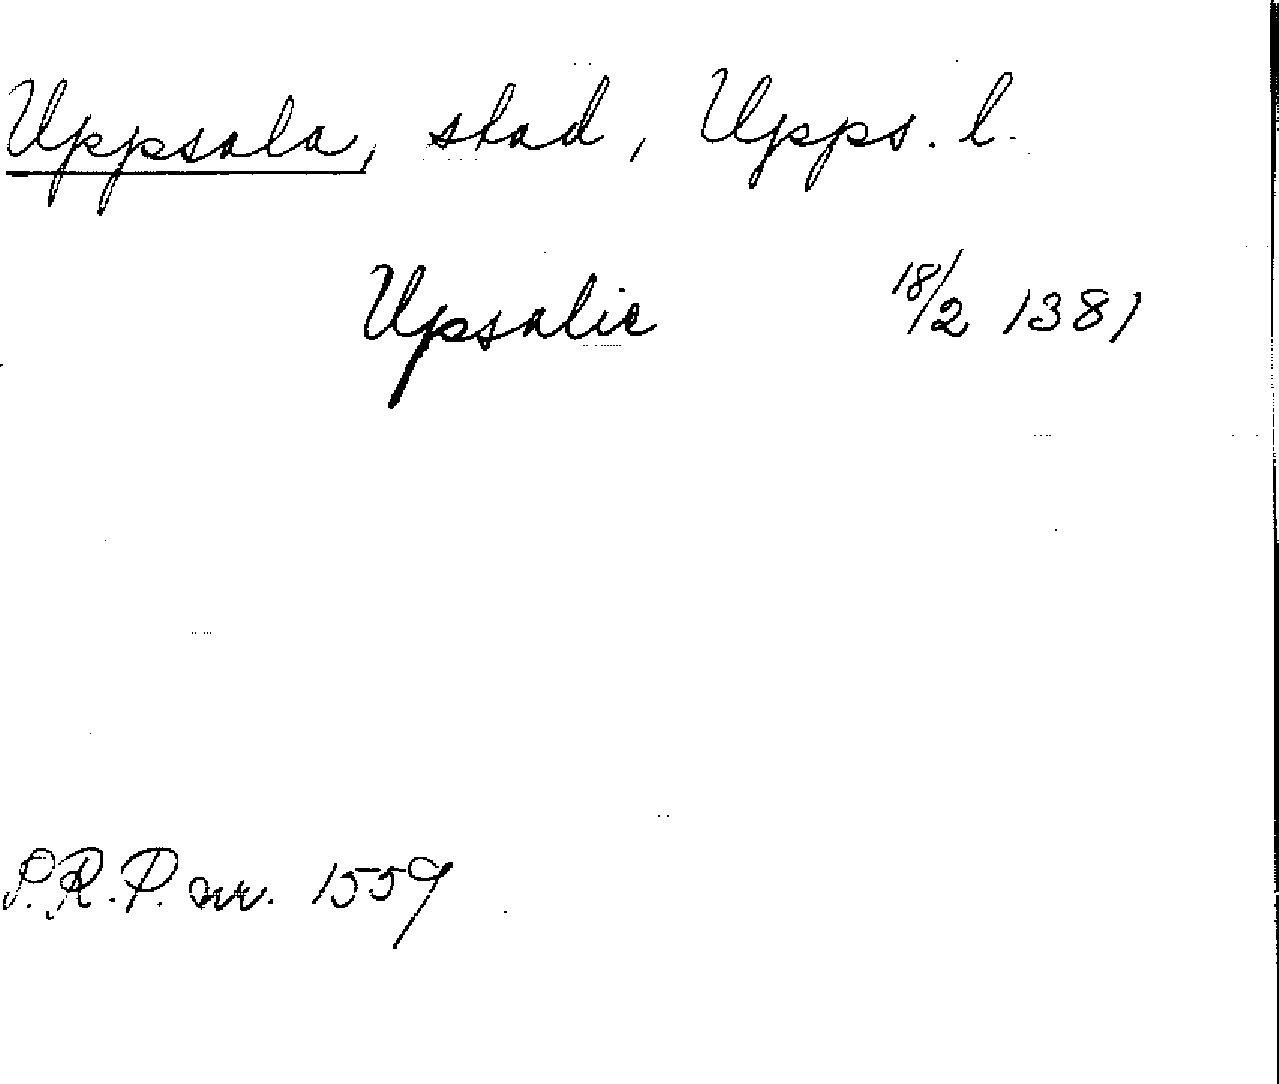 Uppsala, stad, Upps. l.
Upsalie 18/2 1381
S.R.P. nr. 1559